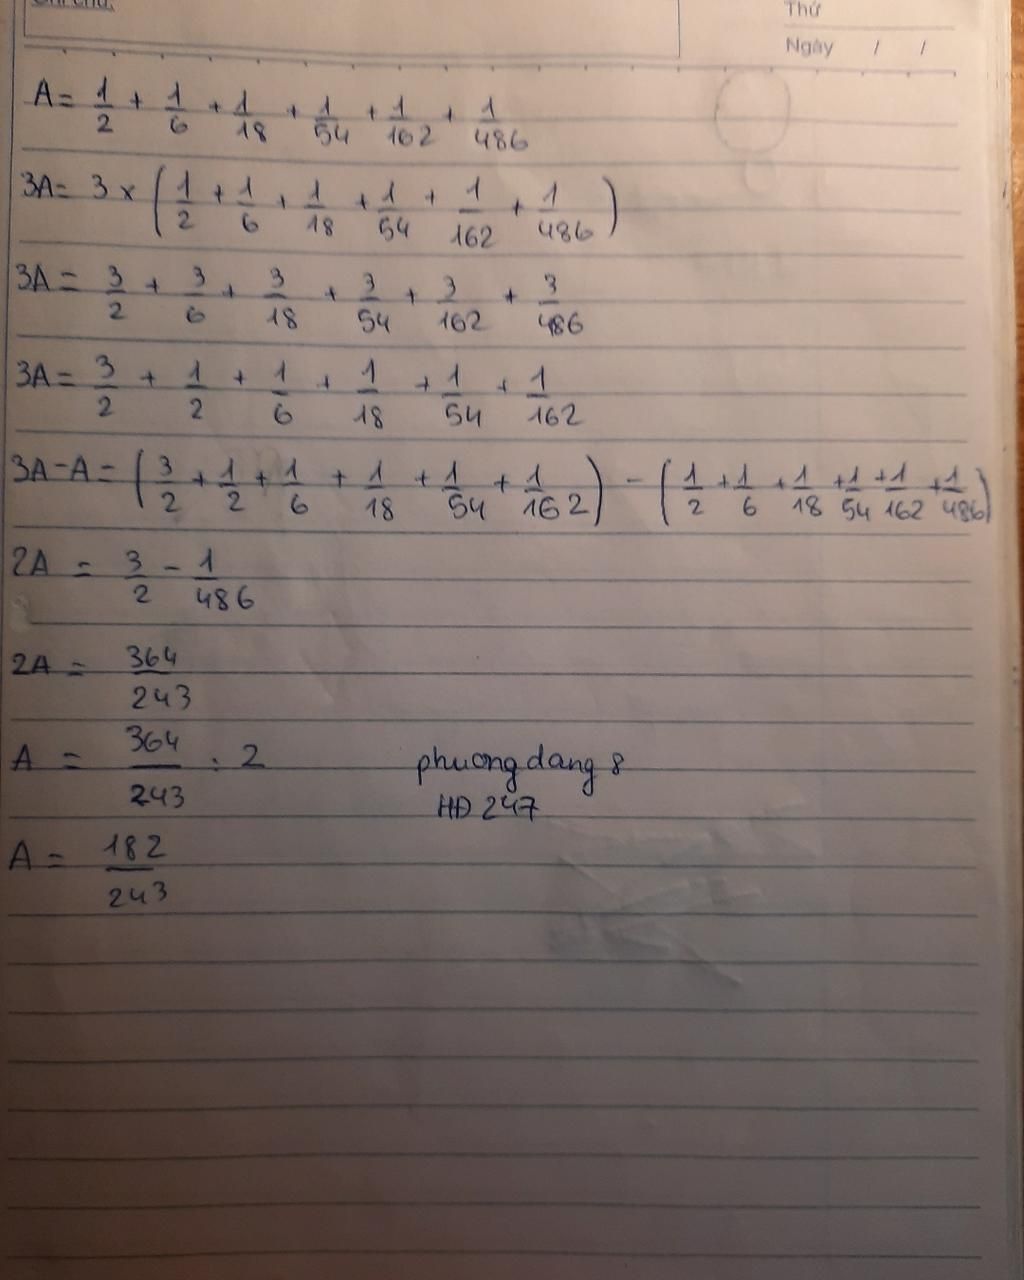 Ghi chú:
Thứ
Ngày / /
A = 1/2 + 1/6 + 1/18 + 1/54 + 1/162 + 1/486
3A = 3 × (1/2 + 1/6 + 1/18 + 1/54 + 1/162 + 1/486)
3A = 3/2 + 3/6 + 3/18 + 3/54 + 3/162 + 3/486
3A = 3/2 + 1/2 + 1/6 + 1/18 + 1/54 + 1/162
3A - A = (3/2 + 1/2 + 1/6 + 1/18 + 1/54 + 1/162) - (1/2 + 1/6 + 1/18 + 1/54 + 1/162 + 1/486)
2A = 3/2 - 1/486
2A = 364/243
A = 364/243 : 2
phuongdang8
HĐ 247
A = 182/243